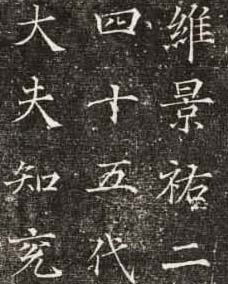 維景祐二
四十五代
大夫知兗